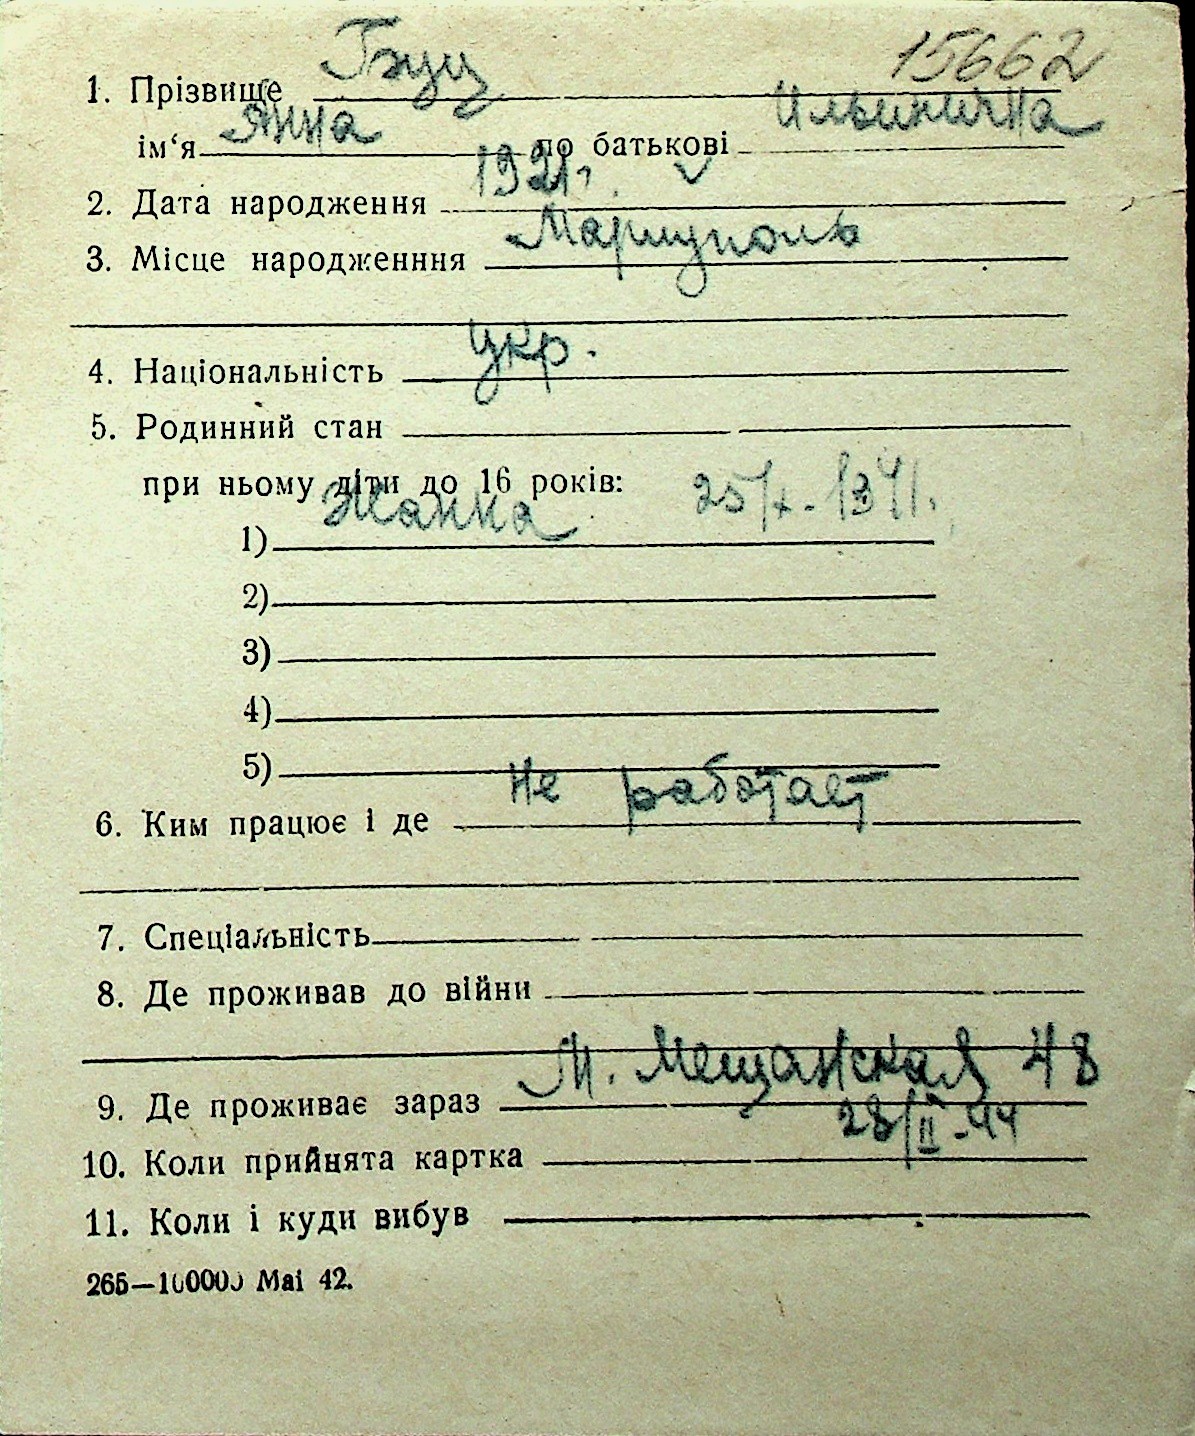 15662
1. Прізвище Буц
ім‘я Анна по батькові Ильинична
2. Дата народження 1921г.
3. Місце народженння Мариуполь
4. Національність укр.
5. Родинний стан
при ньому діти до 16 років:
1) Жанна 25/X-1941.
2)
3)
4)
5)
6. Ким працює і де Не работает
7. Спеціальність
8. Де проживав до війни
9. Де проживає зараз М. Мещанская 48
10. Коли прийнята картка 28/II-44
11. Коли і куди вибув
265—100000 Mai 42.